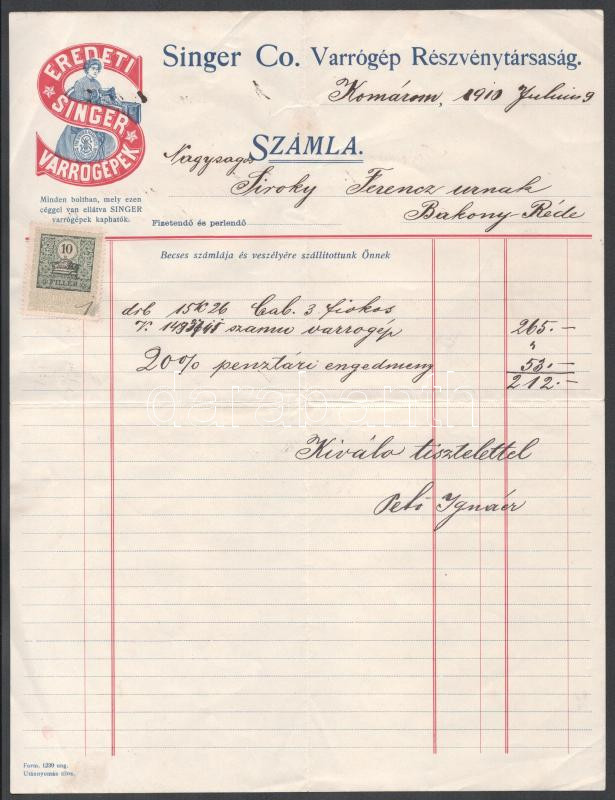 EREDETI
SINGER
VARRÓGÉPEK
Minden boltban, mely ezen
céggel van ellátva SINGER
varrógépek kaphatók.
Singer Co. Varrógép Részvénytársaság.
Komárom, 1910 Julius 9
SZÁMLA.
Nagyságos
Siroky Ferencz urnak
Bakony-Réde
Fizetendő és perlendő
10
FILLÉR
1
Becses számlája és veszélyére szállítottunk Önnek
drb 15K26 Cab. 3 fiokos
szamu varrogép 265.—
20% penztári engedmeny 53.—
212.—
Kiváló tisztelettel
Pető Ignácz
darabanth
Form. 1239 ung.
Utánnyomás tilos.